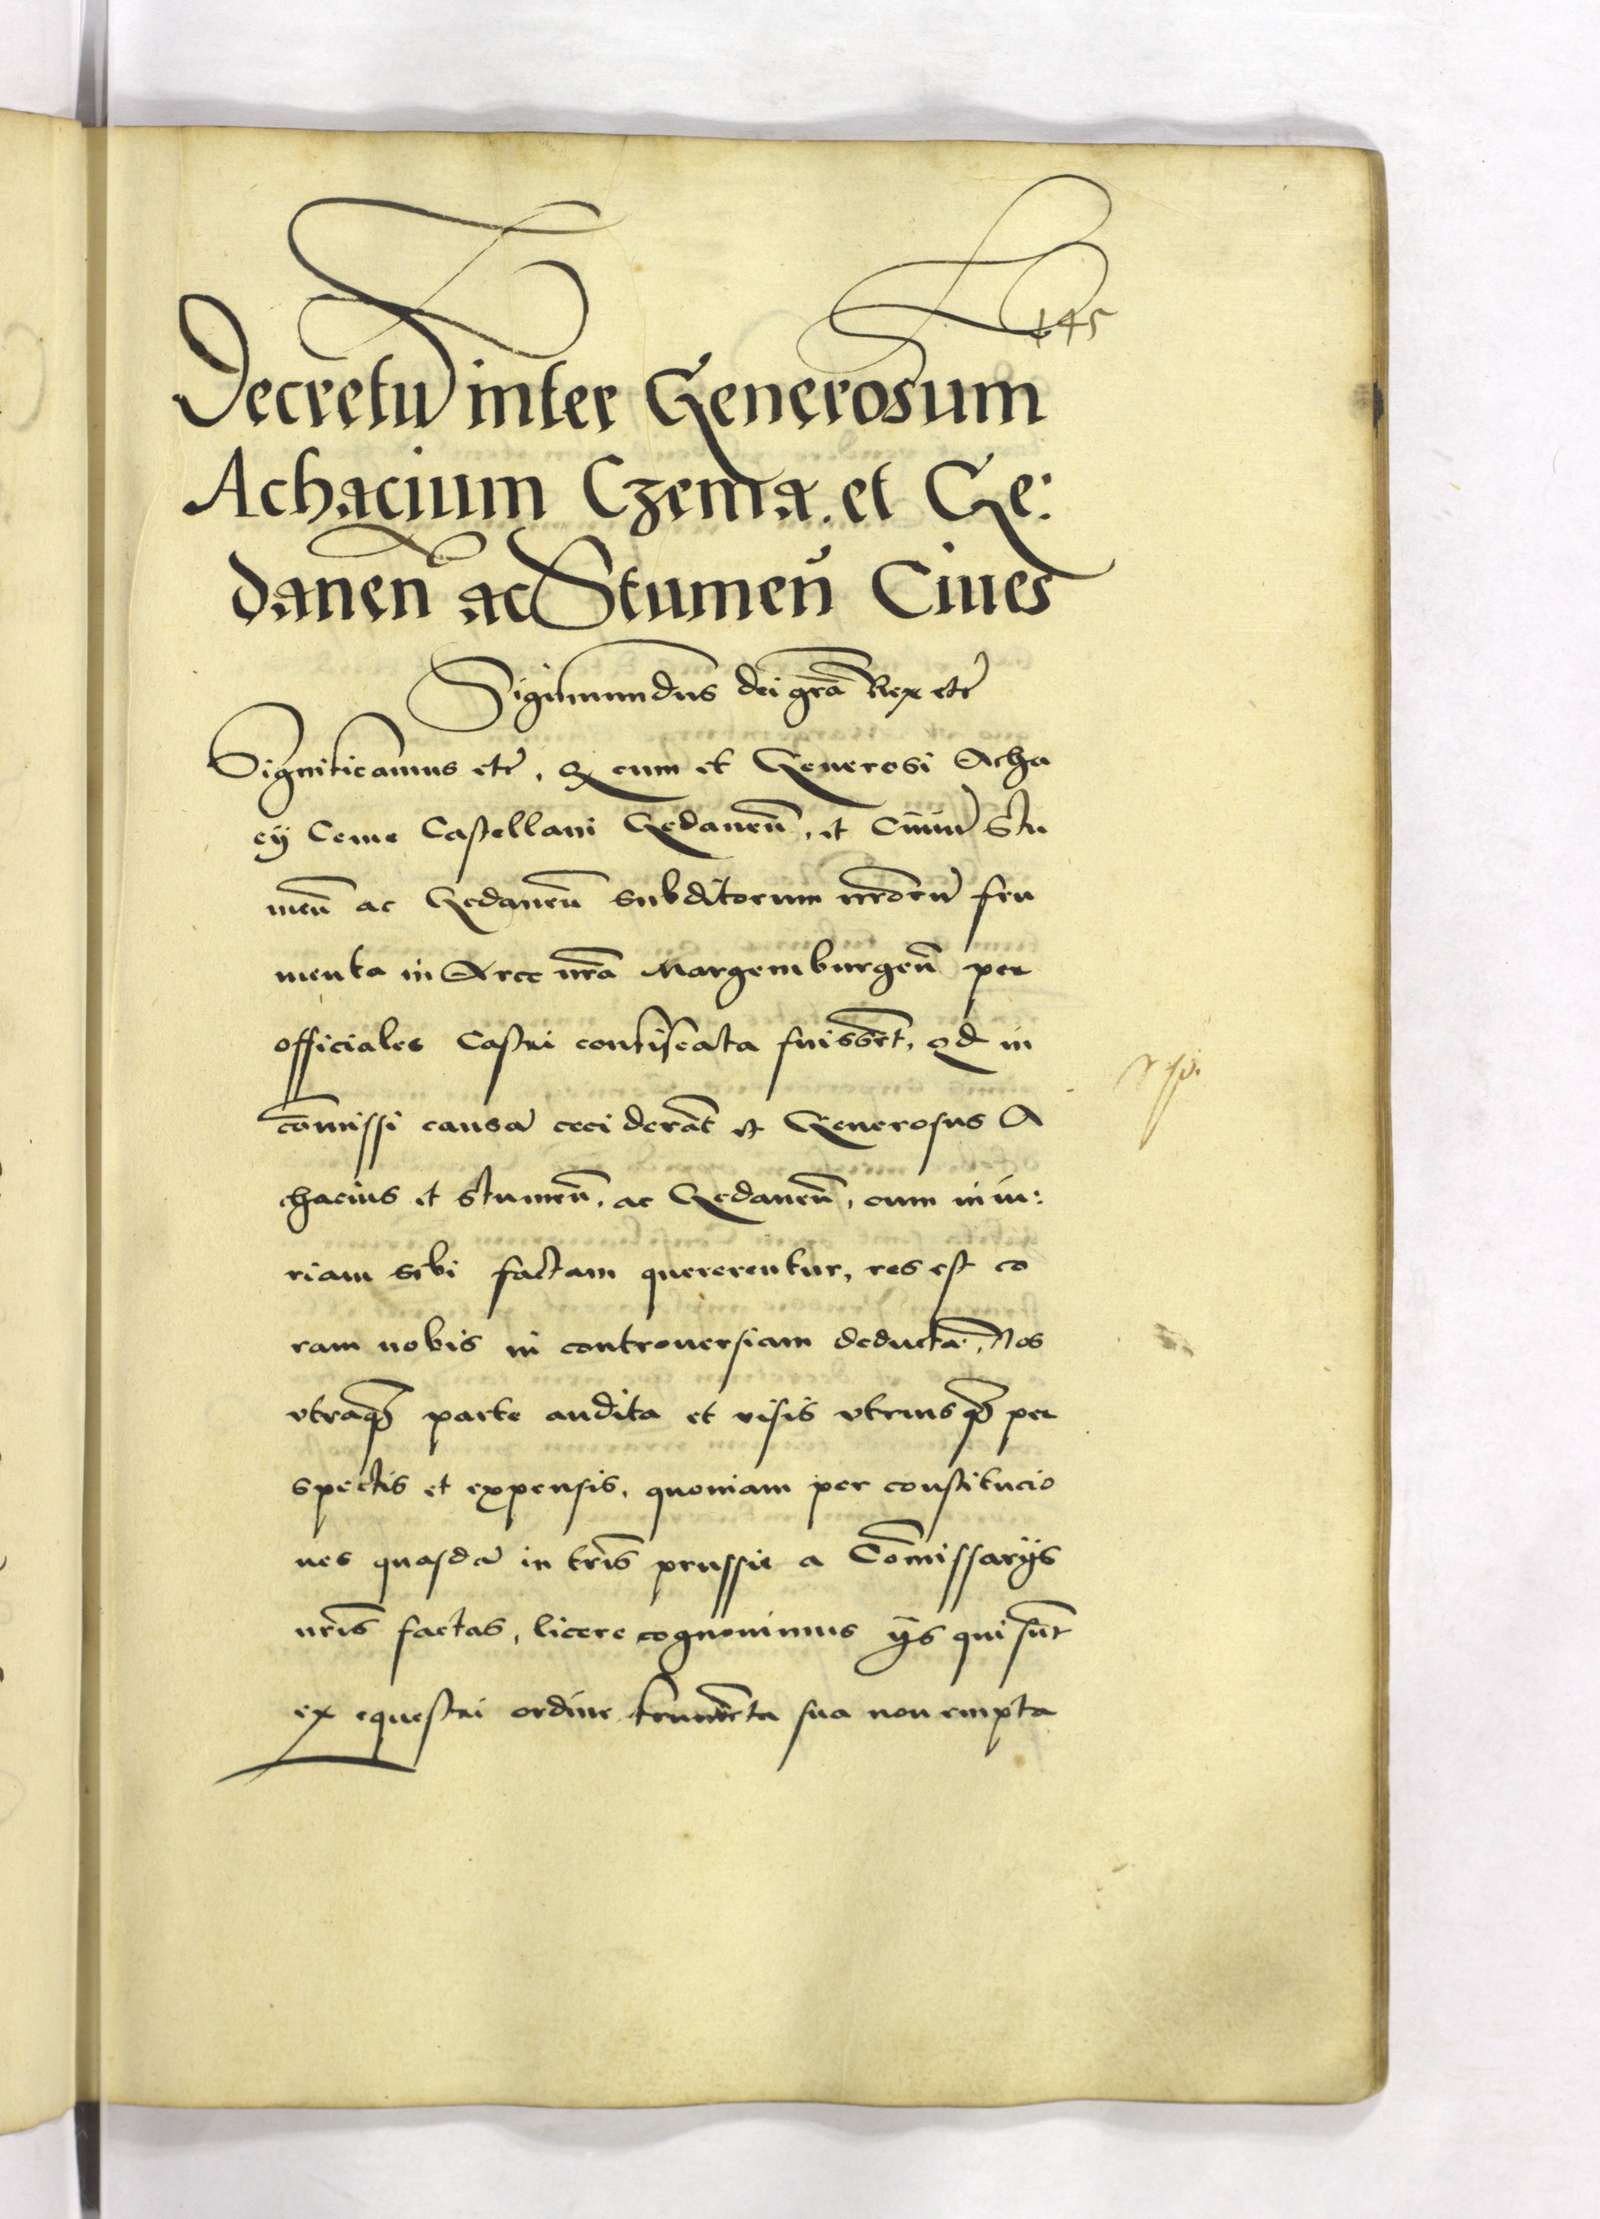 145
Decretu inter Generosum
Achacium Czema. et Ge:
danen ac Stumen Ciues
Sigismundus dei gra Rex etc
Significamus etc, Q cum et Generosi Acha
cij Ceme Castellani Gedanen, et Ciuiu Stu
men ac Gedanen subditorum nrorum fru
menta in Arce nra Margemburgen per
officiales Castri confiscata fuissent, qd in
comissi causa ceciderat et Generosus A
chacius et Stumen, ac Gedanen, cum iniu:
riam sibi factam quererentur, res est co
ram nobis in controuersiam deducta, Nos
vtraq parte audita et visis vtriusq per
spectis et expensis, quoniam per constitucio
nes quasda in tris prussie a Comissarijs
nris factas, licere cognouimus ijs qui sunt
ex equestri ordine frumenta sua non empta